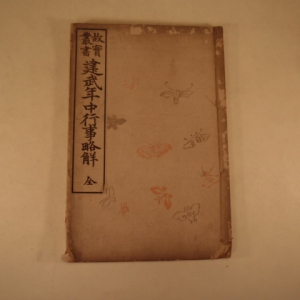 故實叢書
建武年中行事略解
全